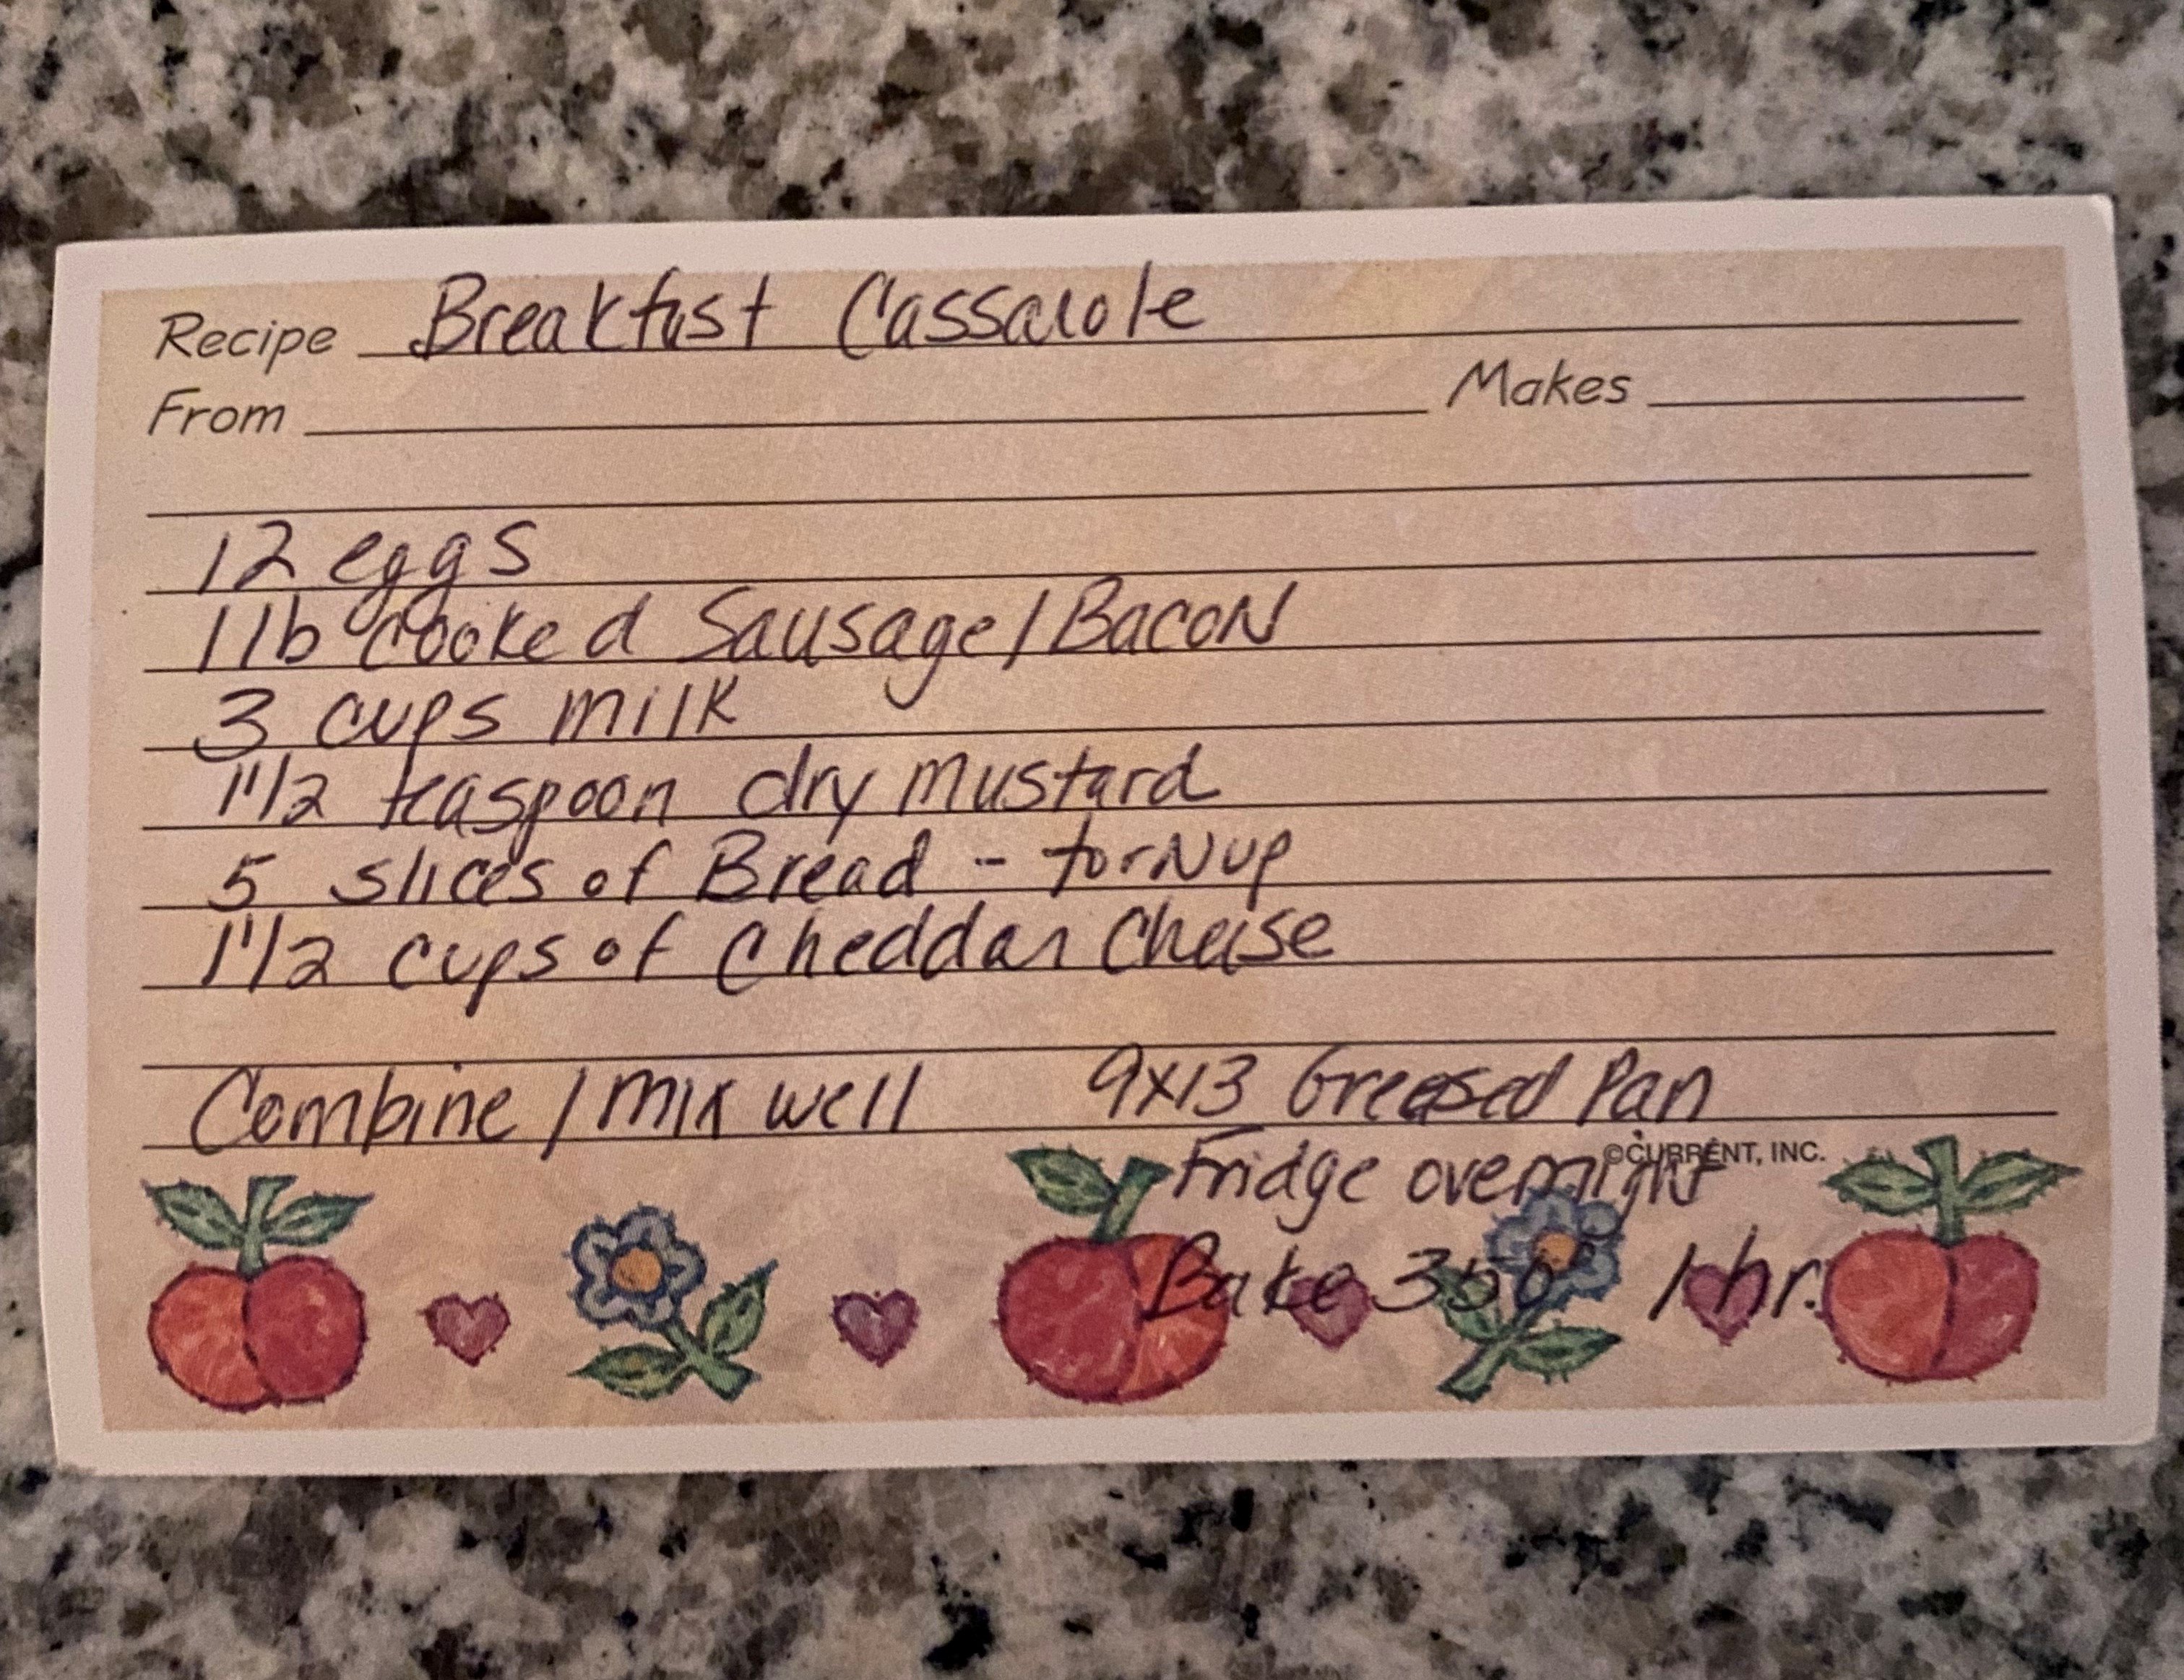 Recipe Breakfast Cassarole
From Makes
12 eggs
1 lb cooked Sausage/Bacon
3 cups milk
1 1/2 teaspoon dry mustard
5 slices of Bread - torn up
1 1/2 cups of Cheddar Cheese
Combine / mix well 9x13 Greased Pan
©CURRENT, INC.
Fridge overnight
Bake 350° 1 hr.